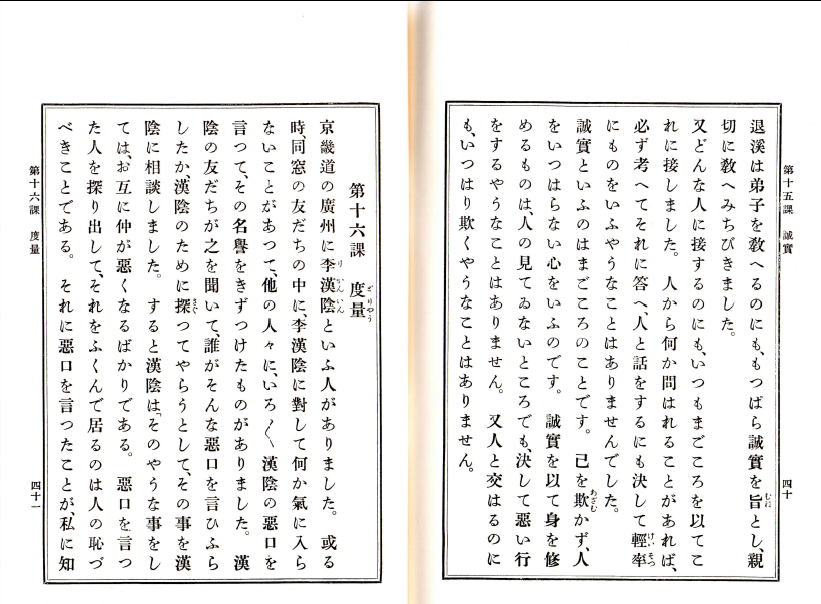 第十五課　誠實
四十
退溪は弟子を敎へるのにも、もつぱら誠實を旨とし、親
むね
切に敎へみちびきました。
又どんな人に接するのにも、いつもまごころを以てこ
れに接しました。　人から何か問はれることがあれば、
必ず考へてそれに答へ、人と話をするにも決して輕率
けいそつ
にものをいふやうなことはありませんでした。
誠實といふのはまごころのことです。　己を欺かず、人
あざむ
をいつはらない心をいふのです。　誠實を以て身を修
めるものは、人の見てゐないところでも、決して惡い行
をするやうなことはありません。　又人と交はるのに
も、いつはり欺くやうなことはありません。
第十六課　度量
どりやう
京畿道の廣州に李漢陰といふ人がありました。　或る
りかんいん
時、同窓の友だちの中に、李漢陰に對して何か氣に入ら
ないことがあつて、他の人々に、いろ〱漢陰の惡口を
言つて、その名譽をきずつけたものがありました。　漢
陰の友だちが之を聞いて、誰がそんな惡口を言ひふら
したか、漢陰のために探つてやらうとして、その事を漢
さぐ
陰に相談しました。　すると漢陰は「そのやうな事をし
ては、お互に仲が惡くなるばかりである。　惡口を言つ
た人を探り出して、それをふくんで居るのは人の恥づ
べきことである。　それに惡口を言つたことが、私に知
第十六課　度量
四十一